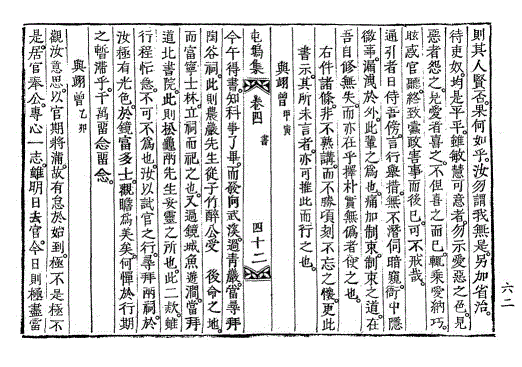 則其人賢否果何如乎汝勿謂我無是另加省治
待吏奴均是平平雖敏慧可意者勿示愛惡之色見
惡者怨之見愛者喜之不但喜之而已輒乘愛納巧
眩惑官聽終致蠹政害事而後已可不戒哉
通引者日侍吾傍言行擧措無不潛伺暗窺衙中隱
微事漏洩於外此輩之爲也痛加制束制束之道在
吾自修無失而亦在乎擇朴實無僞者使之也
右件諸條非不熟講而不勝頃刻不忘之懷更此
書示其所未言者亦可推此而行之也
與翊曾甲寅
屯塢集 卷四 書 四十二
今午得書知科事了畢而發向武溪過靑巖當尋拜
陶谷祠此則農巖先生從子竹醉公受 後命之地
而富寧士林立祠而祀之也又過鏡城魚遊澗當拜
道北書院此則松龜兩先生妥靈之所也此二款雖
行程忙急不可不爲也汝以試官之行尋拜兩祠於
汝極有光色於鏡富多士觀瞻爲美矣何憚於行期
之暫滯乎千萬留念留念
與翊曾乙卯
觀汝意思以官期將滿故有怠於始到極不是極不
是居官奉公專心一志雖明日去官今日則極盡當
六二